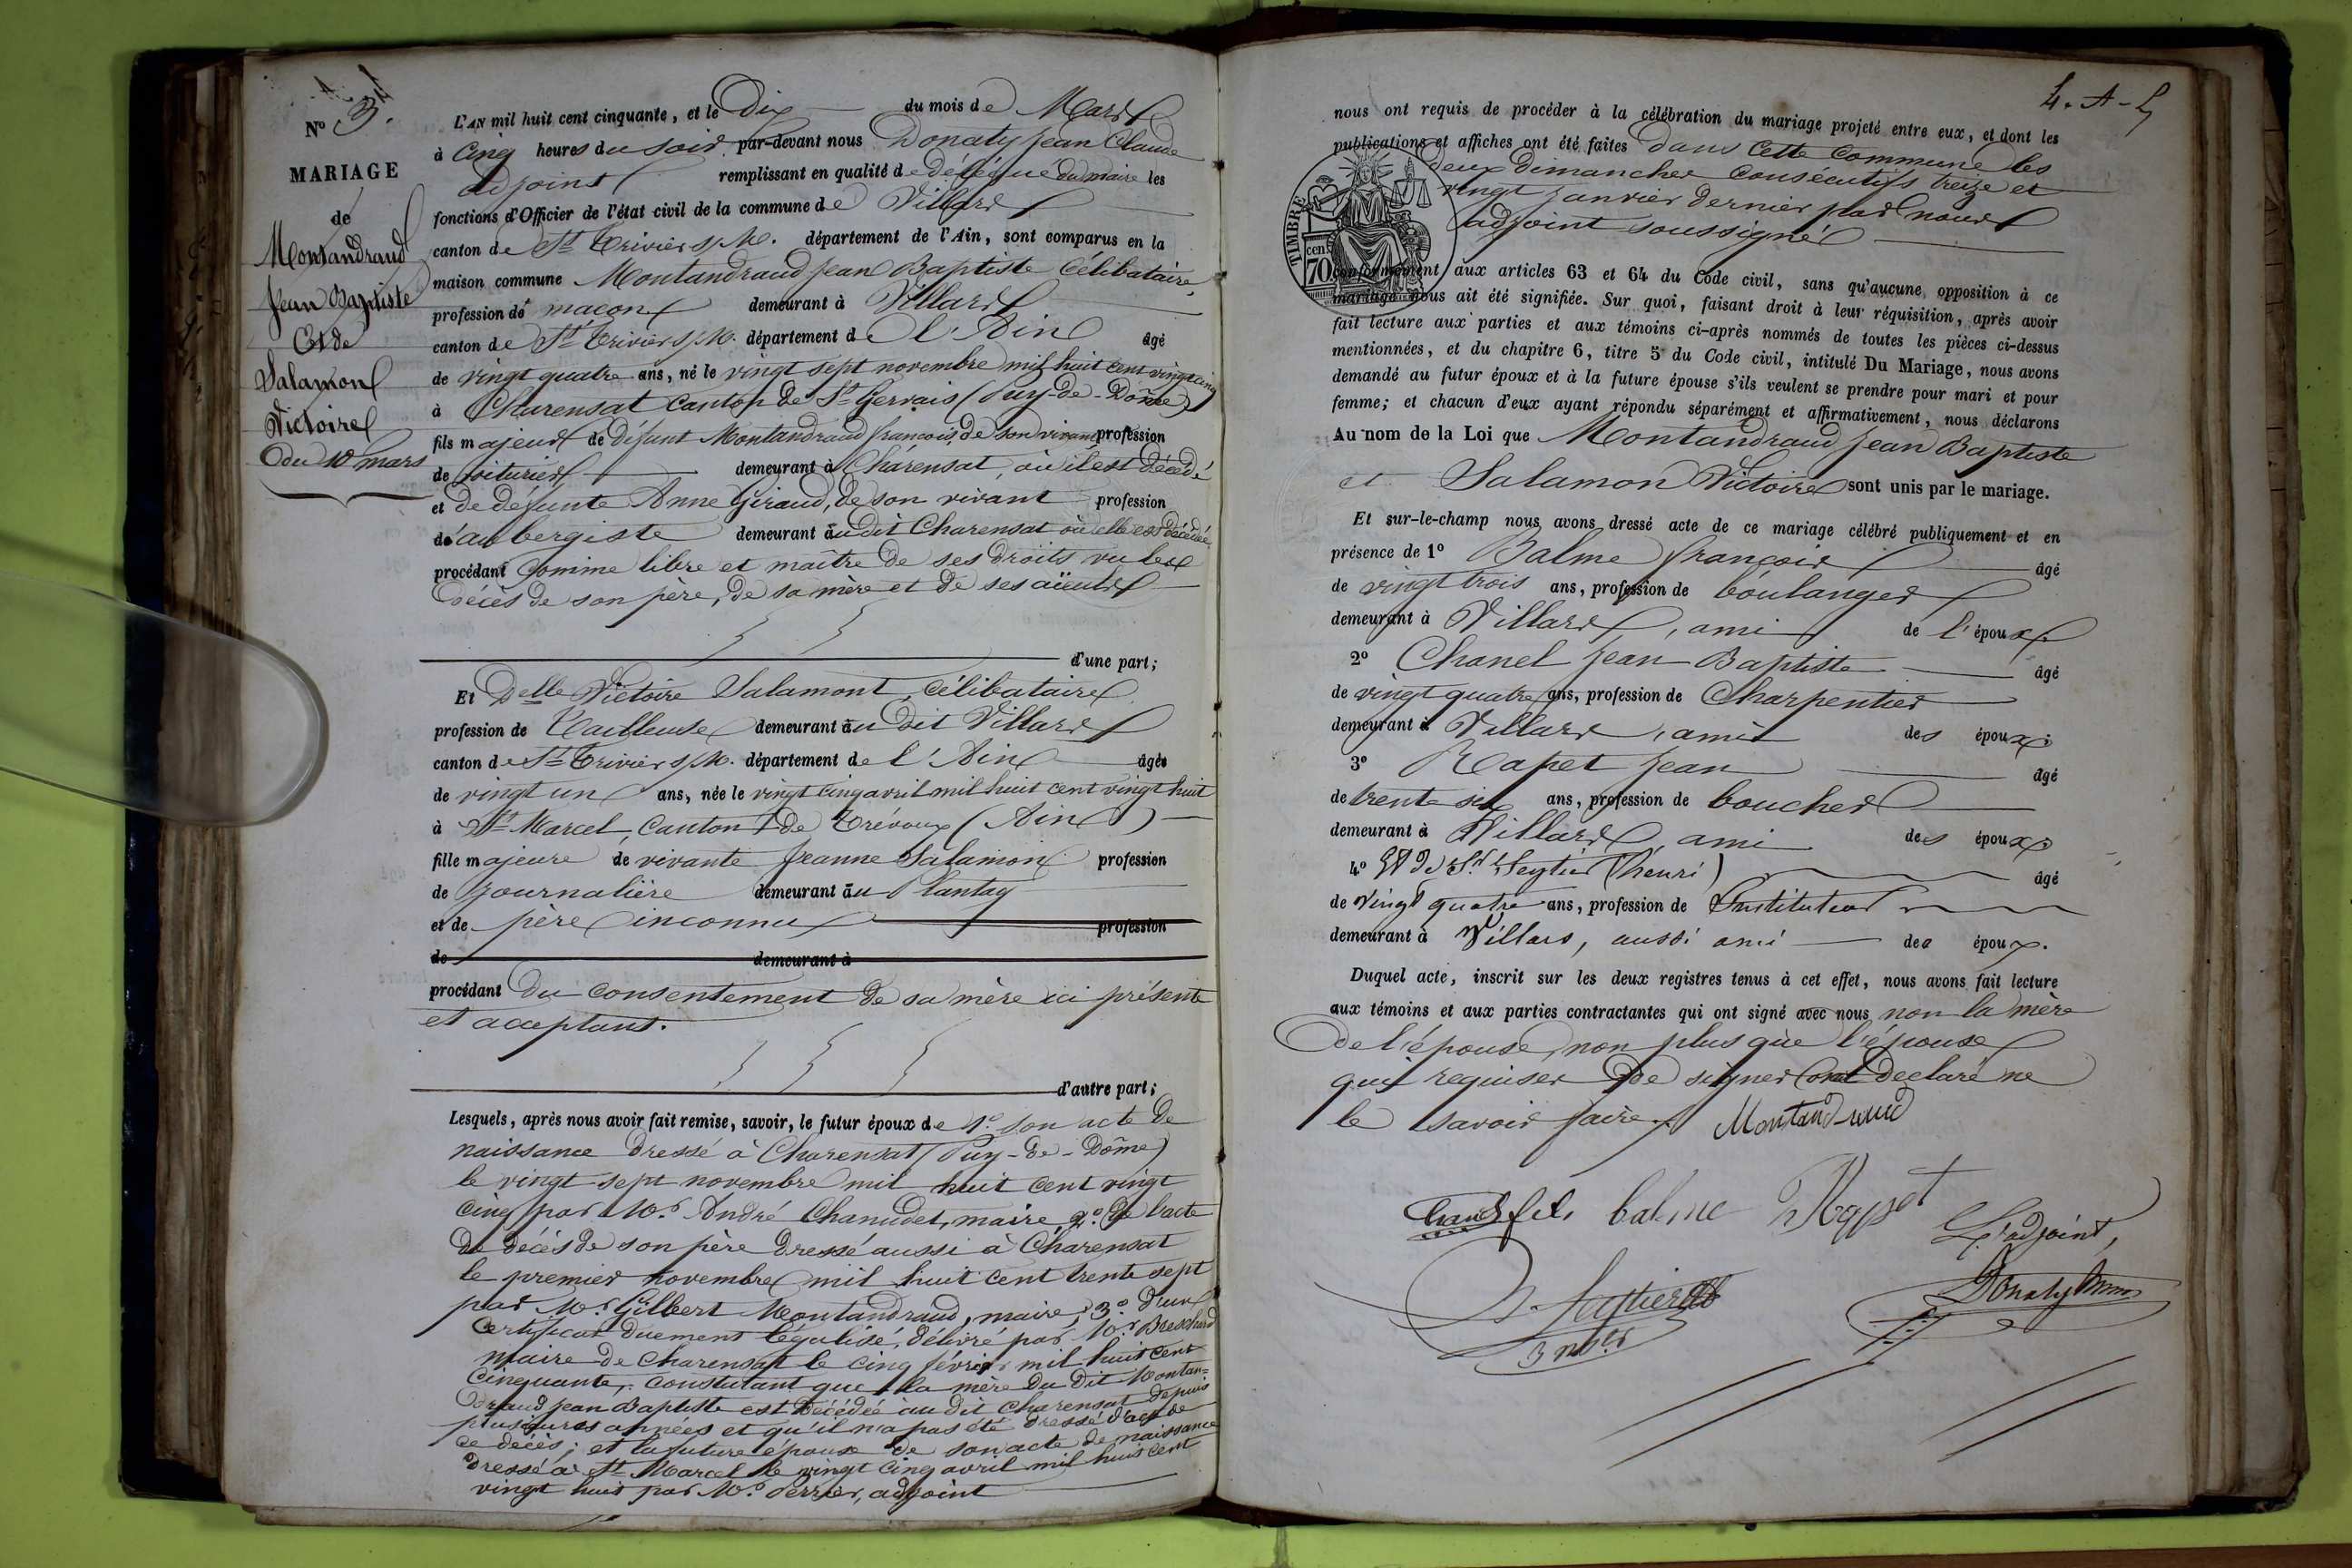 No 3.
MARIAGE
de
Montandraud
Jean Baptiste
Et de
Salamon
Victoire
du 10 mars
L'AN mil huit cent cinquante, et le Dix du mois de Mars
à cinq heures du soir par-devant nous Donaty Jean Claude
adjoint remplissant en qualité de délégué du maire les
fonctions d'Officier de l'état civil de la commune de Villars
canton de St Trivier s/M. département de l'Ain, sont comparus en la
maison commune Montandraud Jean Baptiste Célibataire,
profession de maçon demeurant à Villars
canton de St Trivier s/M. département de l'Ain âgé
de vingt quatre ans, né le vingt sept novembre mil huit cent vingt cinq
à Charensat canton de St Gervais (Puy-de-Dôme)
fils majeur de défunt Montandraud françois, de son vivant profession
de voiturier demeurant à Charensat, où il est décédé
et de défunte Anne Giraud, de son vivant profession
d'aubergiste demeurant au dit Charensat où elle est décédée
procédant comme libre et maître de ses droits vu les
décès de son père, de sa mère et de ses aïeuls
d'une part;
Et Delle Victoire Salamont, célibataire
profession de Tailleuse demeurant au dit Villars
canton de St Trivier s/M. département de l'Ain âgée
de vingt un ans, née le vingt cinq avril mil huit cent vingt huit
à St Marcel, Canton de Trévoux (Ain)
fille majeure de vivante Jeanne Salamon profession
de journalière demeurant au Plantay
et de père inconnu profession
de demeurant à
procédant du consentement de sa mère ici présente
et acceptant.
d'autre part;
Lesquels, après nous avoir fait remise, savoir, le futur époux de 1° son acte de
naissance dressé à Charensat (Puy-de-Dôme)
le vingt-sept novembre mil huit cent vingt
cinq par Mr André Chanudet, maire, 2° de l'acte
de décès de son père dressé aussi à Charensat
le premier novembre mil huit cent trente sept
par Mr Gilbert Montandraud, maire, 3° d'un
certificat duement légalisé, délivré par Mr
maire de Charensat le cinq février mil huit cent
cinquante, constatant que la mère du dit Montan=
draud Jean Baptiste est décédée au dit Charensat depuis
plusieurs années et qu'il n'a pas été dressé d'acte de
ce décès; et la future épouse de son acte de naissance
dressé à St Marcel le vingt cinq avril mil huit cent
vingt huit par Mr Perrier, adjoint
nous ont requis de procéder à la célébration du mariage projeté entre eux, et dont les
publications et affiches ont été faites dans cette commune les
deux dimanches consécutifs treize et
vingt janvier dernier par nous
adjoint soussigné
TIMBRE
70 cen
conformément aux articles 63 et 64 du Code civil, sans qu'aucune opposition à ce
mariage nous ait été signifiée. Sur quoi, faisant droit à leur réquisition, après avoir
fait lecture aux parties et aux témoins ci-après nommés de toutes les pièces ci-dessus
mentionnées, et du chapitre 6, titre 5 du Code civil, intitulé Du Mariage, nous avons
demandé au futur époux et à la future épouse s'ils veulent se prendre pour mari et pour
femme; et chacun d'eux ayant répondu séparément et affirmativement, nous déclarons
Au nom de la Loi que Montandraud Jean Baptiste
et Salamon Victoire sont unis par le mariage.
Et sur-le-champ nous avons dressé acte de ce mariage célébré publiquement et en
présence de 1° Balme françois âgé
de vingt trois ans, profession de boulanger
demeurant à Villars, ami de l'époux.
2° Chanel Jean Baptiste âgé
de vingt quatre ans, profession de Charpentier
demeurant à Villars, ami des époux.
3° Rapet Jean âgé
de trente six ans, profession de boucher
demeurant à Villars, ami des époux
4° Et de Sr Seytier (henri) âgé
de Vingt quatre ans, profession de Instituteur
demeurant à Villars, aussi ami des époux.
Duquel acte, inscrit sur les deux registres tenus à cet effet, nous avons fait lecture
aux témoins et aux parties contractantes qui ont signé avec nous non la mère
de l'épouse, non plus que l'épouse
qui requises de signer ont déclaré ne
le savoir faire. Montandraud
Chanel fils balme Rapet
L'adjoint,
Seytier
Donaty